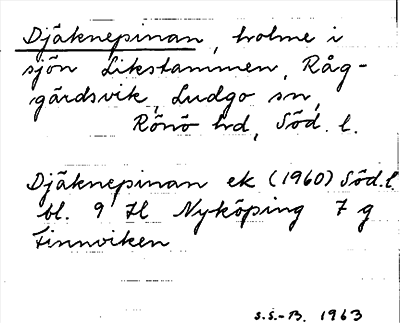 Djäknepinan, holme i
sjön Likstammen, Råg-
gårdsvik, Ludgo sn,
Rönö hd, Söd. l.
Djäknepinan ek (1960) Söd. l
bl. 9 H Nyköping 7 g
Finnviken
S.S.-B. 1963